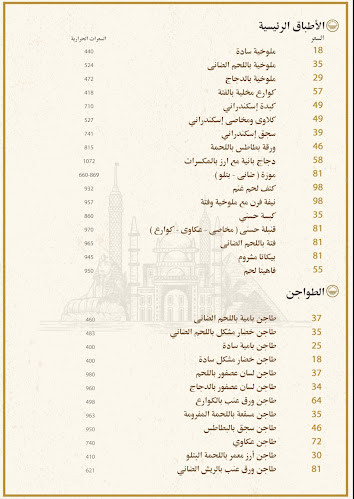 الأطباق الرئيسية
السعر السعرات الحرارية
18 ملوخية سادة 440
35 ملوخية باللحم الضانى 524
29 ملوخية بالدجاج 472
57 كوارع مخلية بالفتة 418
49 كبدة إسكندراني 710
49 كلاوى ومخاصى إسكندراني 527
39 سجق إسكندراني 741
46 ورقة بطاطس باللحمة 815
58 دجاج بانية مع ارز بالمكسرات 1072
81 موزة ( ضانى - بتلو ) 660-869
98 كتف لحم غنم 932
98 نيفة فرن مع ملوخية وفتة 957
35 كبسة حسني 860
81 قنبلة حسنى ( مخاصى - عكاوى - كوارع ) 970
81 فتة باللحم الضانى 965
81 بيكاتا مشروم 945
55 فاهيتا لحم 950
الطواجن
37 طاجن بامية باللحم الضانى 460
35 طاجن خضار مشكل باللحم الضاني 483
25 طاجن بامية سادة 400
18 طاجن خضار مشكل سادة 400
37 طاجن لسان عصفور باللحم 980
34 طاجن لسان عصفور بالدجاج 960
64 طاجن ورق عنب بالكوارع 498
35 طاجن مسقعة باللحمة المفرومة 963
46 طاجن سجق بالبطاطس 950
72 طاجن عكاوي 746
30 طاجن أرز معمر باللحمة البتلو 410
81 طاجن ورق عنب بالريش الضاني 621